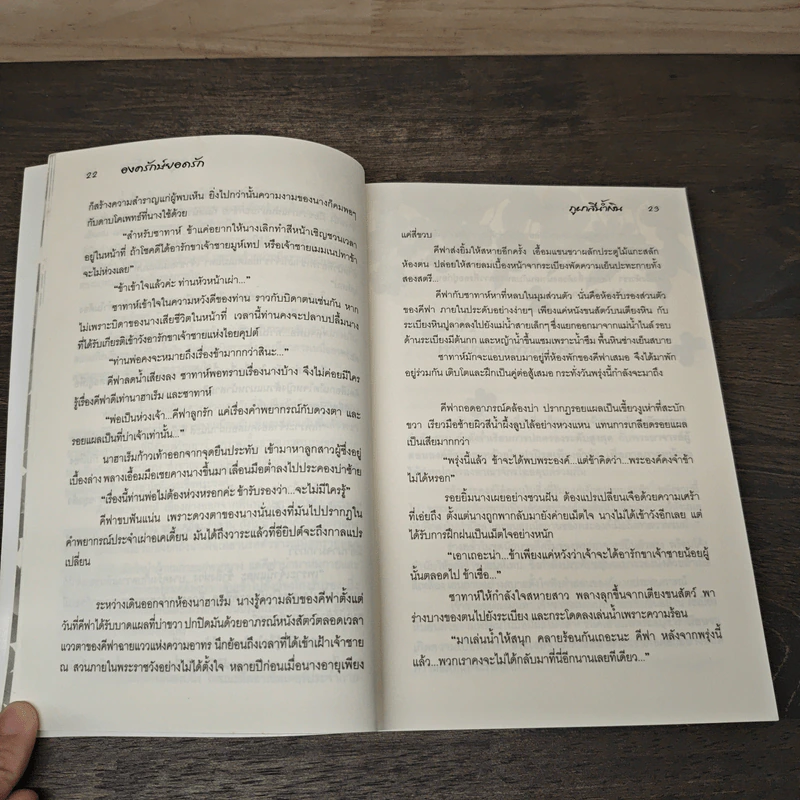 22 องครักษ์ยอดรัก
ก็สร้างความสำราญแก่ผู้พบเห็น ยิ่งไปกว่านั้นความงามของนางก็คมพอๆ
กับดาบโคเพทช์ที่นางใช้ด้วย
"สำหรับซาทาห์ ข้าแค่อยากให้นางเลิกทำสีหน้าเชิญชวนเวลา
อยู่ในหน้าที่ ถ้าโชคดีได้อารักขาเจ้าชายมูห์เทป หรือเจ้าชายเมมเนปทาข้า
จะไม่ห่วงเลย"
"ข้าเข้าใจแล้วค่ะ ท่านหัวหน้าเผ่า..."
ซาทาห์เข้าใจในความหวังดีของท่าน ราวกับบิดาตนเช่นกัน หาก
ไม่เพราะบิดาของนางเสียชีวิตในหน้าที่ เวลานี้ท่านคงจะปลาบปลื้มนาง
ที่ได้รับเกียรติเข้าวังอารักขาเจ้าชายแห่งไอยคุปต์
"ท่านพ่อคงจะหมายถึงเรื่องข้ามากกว่าสินะ..."
คีฟาลดน้ำเสียงลง ซาทาห์พอทราบเรื่องนางบ้าง จึงไม่ค่อยมีใคร
รู้เรื่องคีฟาดีเท่านาฮาเร็ม และซาทาห์
"พ่อเป็นห่วงเจ้า...คีฟาลูกรัก แค่เรื่องคำพยากรณ์กับดวงตา และ
รอยแผลเป็นที่บ่าเจ้าเท่านั้น..."
นาฮาเร็มก้าวเท้าออกจากจุดยืนประทับ เข้ามาหาลูกสาวผู้ซึ่งอยู่
เบื้องล่าง พลางเอื้อมมือเชยคางนางขึ้นมา เลื่อนมือต่ำลงไปประคองบ่าซ้าย
"เรื่องนี้ท่านพ่อไม่ต้องห่วงหรอกค่ะ ข้ารับรองว่า...จะไม่มีใครรู้"
คีฟาขบฟันแน่น เพราะดวงตาของนางนั่นเองที่มันไปปรากฏใน
คำพยากรณ์ประจำเผ่าอเคเดี้ยน มันได้ถึงวาระแล้วที่อียิปต์จะถึงกาลแปร
เปลี่ยน
ระหว่างเดินออกจากห้องนาฮาเร็ม นางรู้ความลับของคีฟาตั้งแต่
วันที่คีฟาได้รับบาดแผลที่บ่าขวา ปกปิดมันด้วยอาภรณ์หนังสัตว์ตลอดเวลา
แววตาของคีฟาฉายแววแห่งความอาทร นึกย้อนถึงเวลาที่ได้เข้าเฝ้าเจ้าชาย
ณ สวนภายในพระราชวังอย่างไม่ได้ตั้งใจ หลายปีก่อนเมื่อนางอายุเพียง
ภูผาสีน้ำเงิน 23
แค่สี่ขวบ
คีฟาส่งยิ้มให้สหายอีกครั้ง เอื้อมแขนขวาผลักประตูไม้แกะสลัก
ห้องตน ปล่อยให้สายลมเบื้องหน้าจากระเบียงพัดความเย็นปะทะกายทั้ง
สองสตรี...
คีฟากับซาทาห์หาที่หลบในมุมส่วนตัว นั่นคือห้องรับรองส่วนตัว
ของคีฟา ภายในประดับอย่างง่ายๆ เพียงแค่หนังขนสัตว์บนเตียงหิน กับ
ระเบียงหินปูลาดลงไปยังแม่น้ำสายเล็กๆ ซึ่งแยกออกมาจากแม่น้ำไนล์ รอบ
ด้านระเบียงมีต้นกก และหญ้าน้ำขึ้นแซมเพราะน้ำซึม พื้นหินช่างเย็นสบาย
ซาทาห์มักจะแอบหลบมาอยู่ที่ห้องพักของคีฟาเสมอ จึงได้มาพัก
อยู่ร่วมกัน เติบโตและฝึกเป็นคู่ต่อสู้เสมอ กระทั่งวันพรุ่งนี้กำลังจะมาถึง
คีฟาถอดอาภรณ์คล้องบ่า ปรากฏรอยแผลเป็นเขี้ยวงูเห่าที่สะบัก
ขวา เรียวมือซ้ายผิวสีน้ำผึ้งลูบไล้อย่างหวงแหน แทนการเกลียดรอยแผล
เป็นเสียมากกว่า
"พรุ่งนี้แล้ว ข้าจะได้พบพระองค์...แต่ข้าคิดว่า...พระองค์คงจำข้า
ไม่ได้หรอก"
รอยยิ้มนางเผยอย่างชวนฝัน ต้องแปรเปลี่ยนเจือด้วยความเศร้า
ที่เอ่ยถึง ตั้งแต่นางถูกพากลับมายังค่ายเม็ดใจ นางไม่ได้เข้าวังอีกเลย แต่
ได้รับการฝึกฝนเป็นเม็ดใจอย่างหนัก
"เอาเถอะน่า...ข้าเพียงแค่หวังว่าเจ้าจะได้อารักขาเจ้าชายน้อยผู้
นั้นตลอดไป ข้าเชื่อ..."
ซาทาห์ให้กำลังใจสหายสาว พลางลุกขึ้นจากเตียงขนสัตว์ พา
ร่างบางของตนไปยังระเบียง และกระโดดลงเล่นน้ำเพราะความร้อน
"มาเล่นน้ำให้สนุก คลายร้อนกันเถอะนะ คีฟา หลังจากพรุ่งนี้
แล้ว...พวกเราคงจะไม่ได้กลับมาที่นี่อีกนานเลยทีเดียว..."